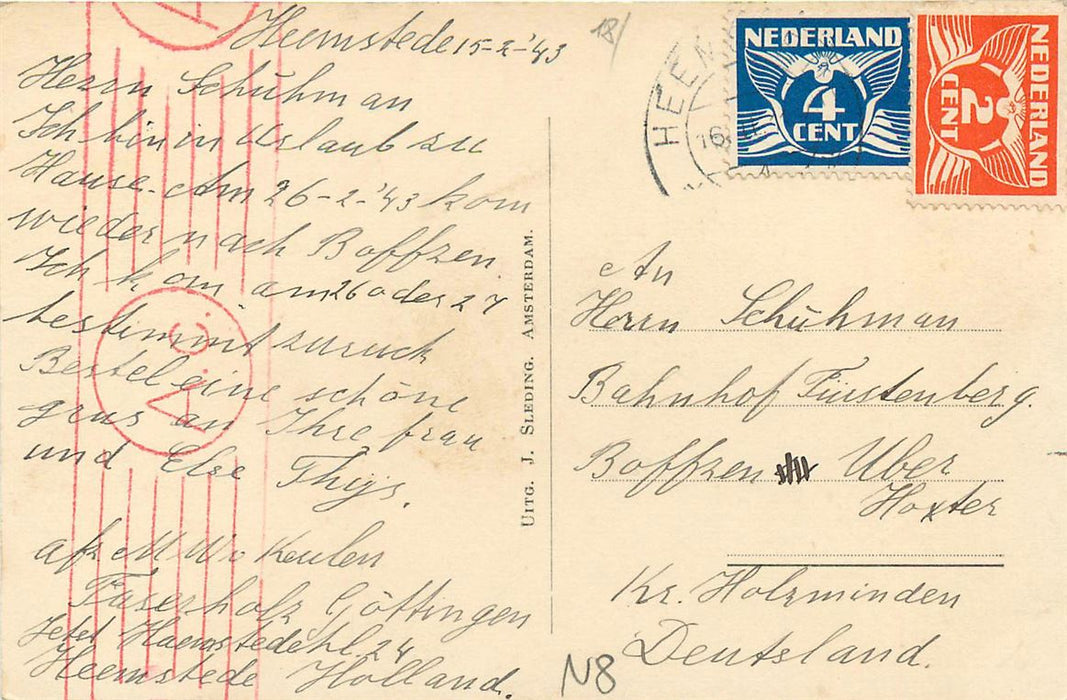 Heemstede 15-2-'43
Herrn Schuhman
Ich bin in Urlaub zu
Hause. Am 26-2-'43 kom
wieder nach Boffzen.
Ich kom am 26 oder 27
bestimmt zuruck
Bestel eine schöne
grus an Ihre frau
und Else Thijs.
afz M W v Keulen
Faserholz Göttingen
Jetzt Haemstedehl. 24
Heemstede Holland.
UITG. J. SLEDING. AMSTERDAM.
18/
HEEM
16
NEDERLAND
4
CENT
NEDERLAND
2
CENT
An
Herrn Schuhman
Bahnhof Fürstenberg.
Boffzen Uber
Hoxter
Kr. Holzminden
Deutsland.
N8
A.c.